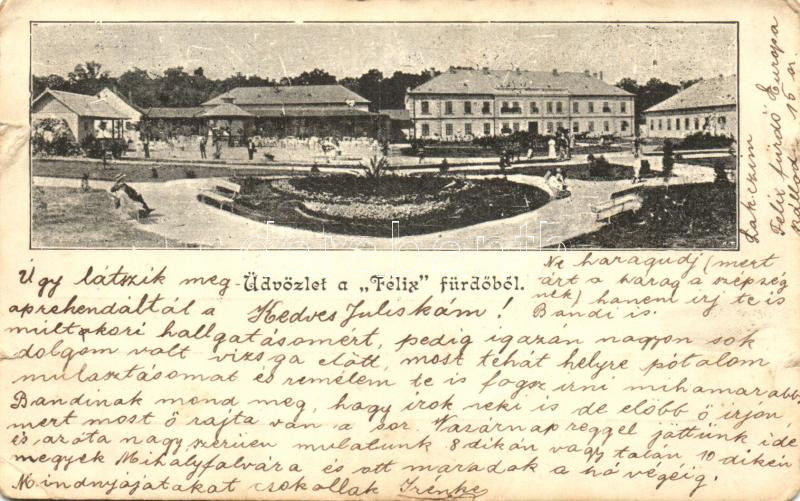 Üdvözlet a „Félix” fürdőből.
Kedves Juliskám!
Úgy látszik meg-
aprehendáltál a
multkori hallgatásomért, pedig igazán nagyon sok
dolgom volt vizsga előtt, most tehát helyre pótolom
mulasztásomat és remélem te is fogsz irni mihamarabb
Bandinak mond meg, hogy irok neki is de előbb ő irjon,
mert most ő rajta van a sor. Vasárnap reggel jöttünk ide
és azóta nagyszerüen mulatunk 8 dikán vagy talán 10 dikén
megyek Mihályfalvára és ott maradok a hó végéig.
Mindnyájatokat csokollak Irénke
Ne haragudj (mert
árt a harag a szépség
nek) hanem irj te is
Bandi is.
Lakczim
Félix fürdő Europa
szálloda 15 sz